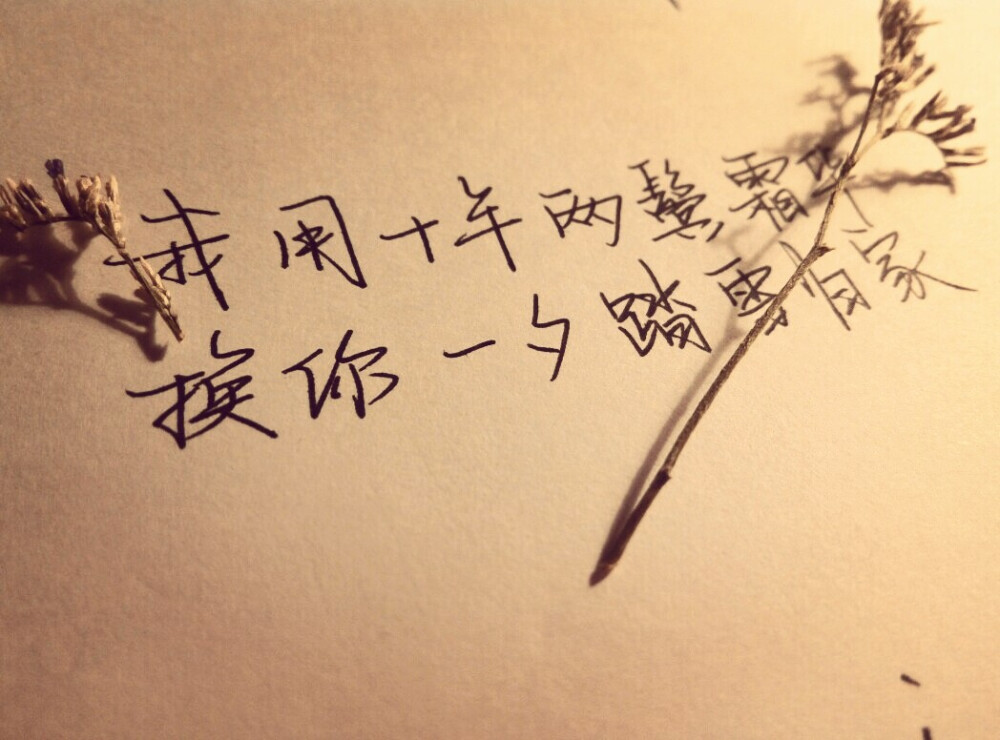 我用十年两鬓霜华
换你一夕踏雪归家